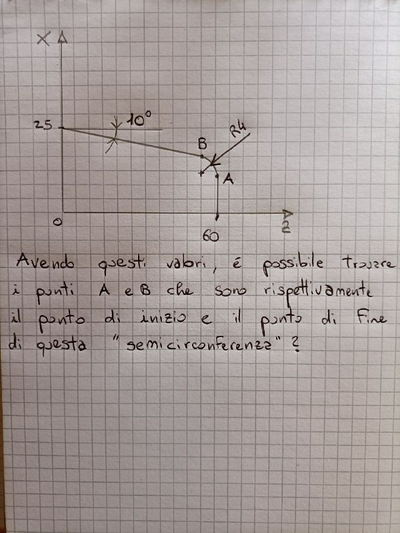 X
25
10°
B
R4
A
0
60
Z
Avendo questi valori, é possibile trovare
i punti A e B che sono rispettivamente
il punto di inizio e il punto di fine
di questa "semicirconferenza"?